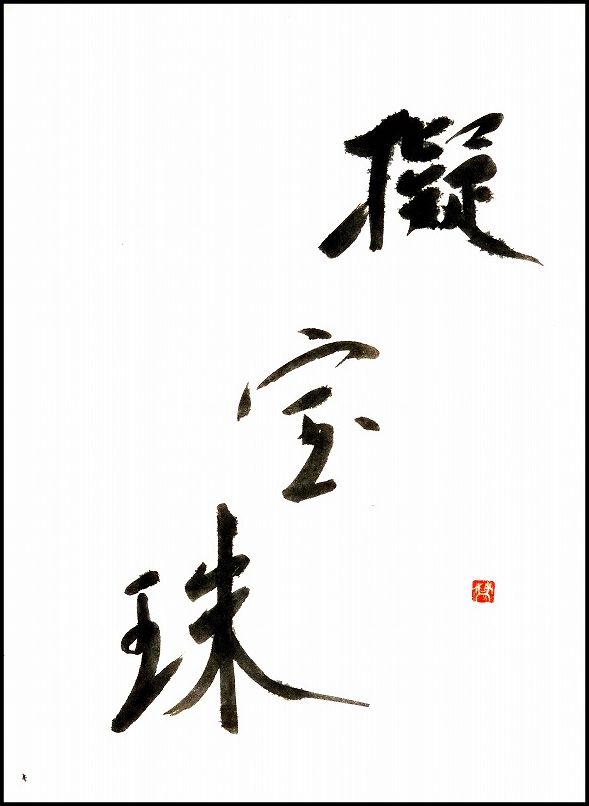 擬宝珠